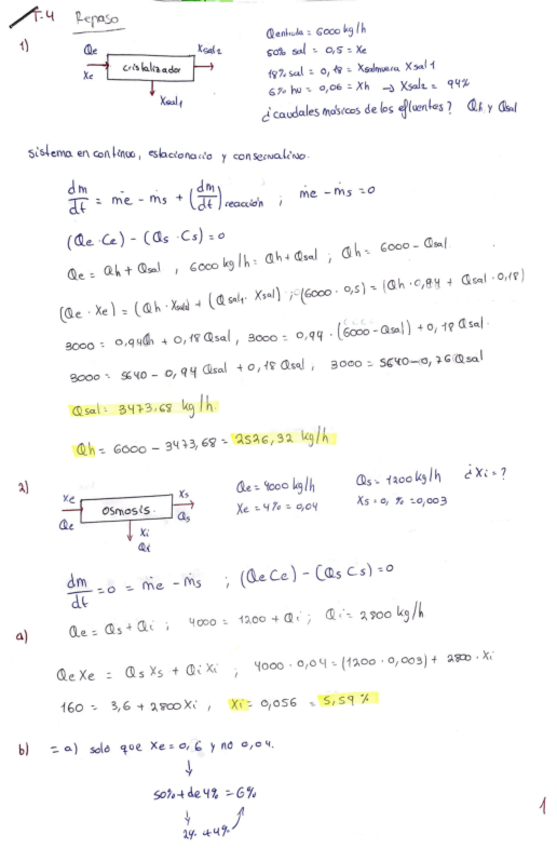 T-4 Repaso
1)
Qe
Xe
cristalizador
Xsal2
Xsal1
Qentrada = 6000 kg/h
50% sal = 0,5 = Xe
18% sal = 0,18 = Xsalmuera Xsal1
6% hu = 0,06 = Xh → Xsal2 = 94%
¿caudales másicos de los efluentes? Qh y Qsal
Sistema en continuo, estacionario y conservativo.
dm/dt = ṁe - ṁs + (dm/dt)reacción ; ṁe - ṁs = 0
(Qe · Ce) - (Qs · Cs) = 0
Qe = Qh + Qsal , 6000 kg/h = Qh + Qsal ; Qh = 6000 - Qsal
(Qe · Xe) = (Qh · Xsal2) + (Qsal1 · Xsal) ; (6000 · 0,5) = (Qh · 0,94 + Qsal · 0,18)
3000 = 0,94Qh + 0,18 Qsal, 3000 = 0,94 · (6000 - Qsal) + 0,18 Qsal.
3000 = 5640 - 0,94 Qsal + 0,18 Qsal, 3000 = 5640 - 0,76 Qsal
Qsal = 3473,68 kg/h.
Qh = 6000 - 3473,68 = 2526,32 kg/h
2)
Xe
Qe
osmosis.
Xs
Qs
Xi
Qi
Qe = 4000 kg/h Qs = 1200 kg/h ¿Xi = ?
Xe = 4% = 0,04 Xs = 0, % = 0,003
dm/dt = 0 = ṁe - ṁs ; (Qe Ce) - (Qs Cs) = 0
a) Qe = Qs + Qi ; 4000 = 1200 + Qi ; Qi = 2800 kg/h
Qe Xe = Qs Xs + Qi Xi ; 4000 · 0,04 = (1200 · 0,003) + 2800 · Xi
160 = 3,6 + 2800 Xi , Xi = 0,056 = 5,59 %
b) = a) solo que Xe = 0,6 y no 0,04.
↓
50% + de 4% = 6%
↓
2% + 4%
1